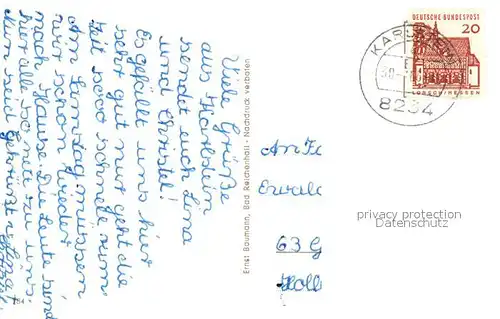 Viele Grüße
aus Karlstein
sendet euch Lina
und Christel!
Es gefällt uns hier
sehr gut nur geht die
Zeit sooo schnell rum.
Am Sonntag müssen
wir schon wieder
nach Hause. Die Leute sind
hier alle so nett zu uns.
Nun seid gegrüßt v. Lina
Ernst Baumann, Bad Reichenhall - Nachdruck verboten
An Fa
Erwa
63 G
DEUTSCHE BUNDESPOST
20
LORSCH/HESSEN
KARLSTEIN
8234
privacy protection
Datenschutz